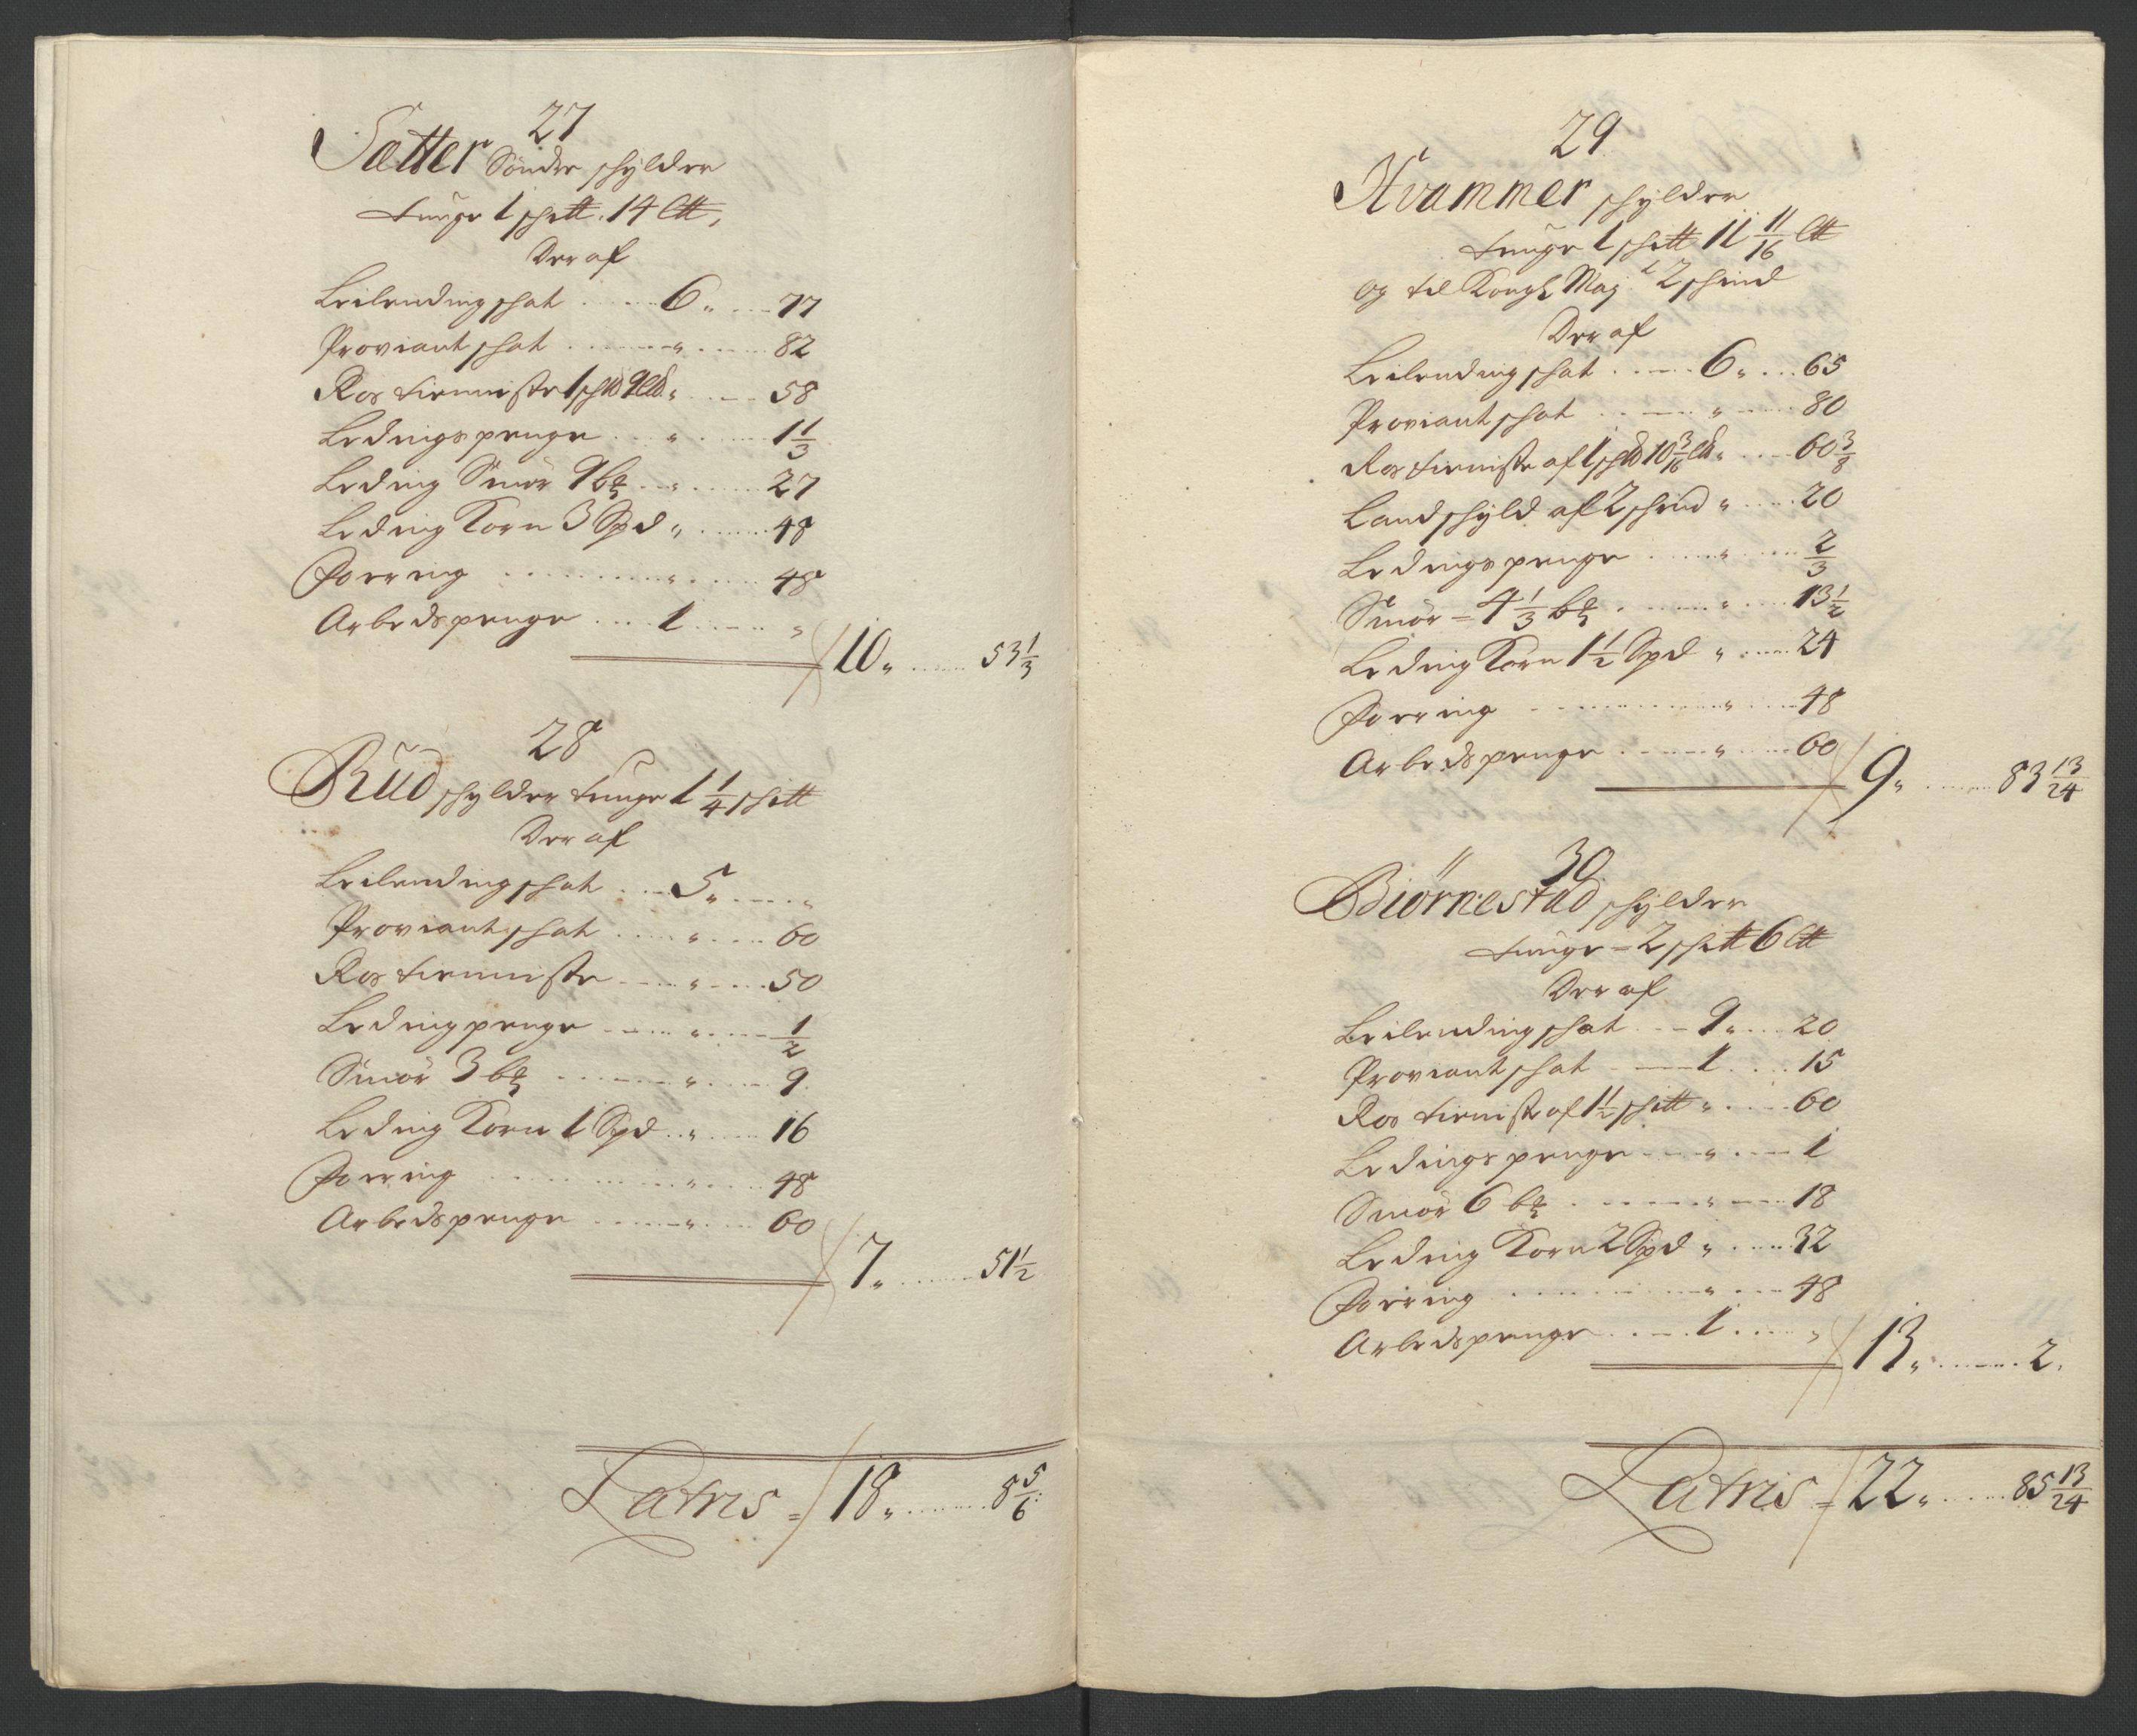 27
Sætter Søndre schylder
tunge 1 sch℔. 14 L℔,
Der af
Leilending schat ..... 6 „ ... 77
Proviant schat ......... „ ..... 82
Ros tienniste 1 sch℔ 9 L℔ „ .... 58
Ledings penge ... „ ..... 1 1/3
Leding Smör 9 bℓ ... „ ...... 27
Leding Korn 3 Spd „ ...... 48
Foering .............. „ ..... 48
Arbedspenge .... 1 ..... „
10 „ ...... 53 1/3
28
Rud schylder tunge 1 1/4 sch℔
Der af
Leilending schat ... 5 „ ..... „
Proviant schat ..... „ .... 60
Ros tienniste ..... „ .... 50
Leding penge ..... „ .... 1/2
Smör 3 bℓ ....... „ .... 9
Leding Korn 1 Spd .. „ .... 16
Foering ............ „ .... 48
Arbedspenge ....... „ .... 60
7 „ ....... 51 1/2
Latris = 18 „ ....... 8 5/6
29
Hvammer schylder
tunge 1 sch℔ 11 11/16 L℔
og til Kongl Mayt 2 schind
Der af
Leilending schat ..... 6 „ ... 65
Proviant schat ...... „ ..... 80
Ros tieniste af 1 sch℔ 10 3/16 L℔ „ .... 60 3/8
Landschyld af 2 schind „ .... 20
Ledings penge ..... „ .... 2/3
Smör = 4 1/3 bℓ ...... „ .... 13 1/2
Leding Korn 1 1/2 Spd „ ..... 24
Foering ............ „ .... 48
Arbedspenge ...... „ .... 60
9 „ ....... 83 13/24
30
Biörnestad schylder
tunge = 2 sch℔ 6 L℔
Der af
Leilending schat ... 9 „ ... 20
Proviant schat .... 1 .... 15
Ros tieniste af 1 1/2 sch℔ „ .... 60
Ledings penge ... „ .... 1
Smör 6 bℓ ....... „ .... 18
Leding Korn 2 Spd „ ..... 32
Foering ......... „ .... 48
Arbedspenge ..... 1 ..... „
13 „ ....... 2.
Latris = 22 „ ...... 85 13/24